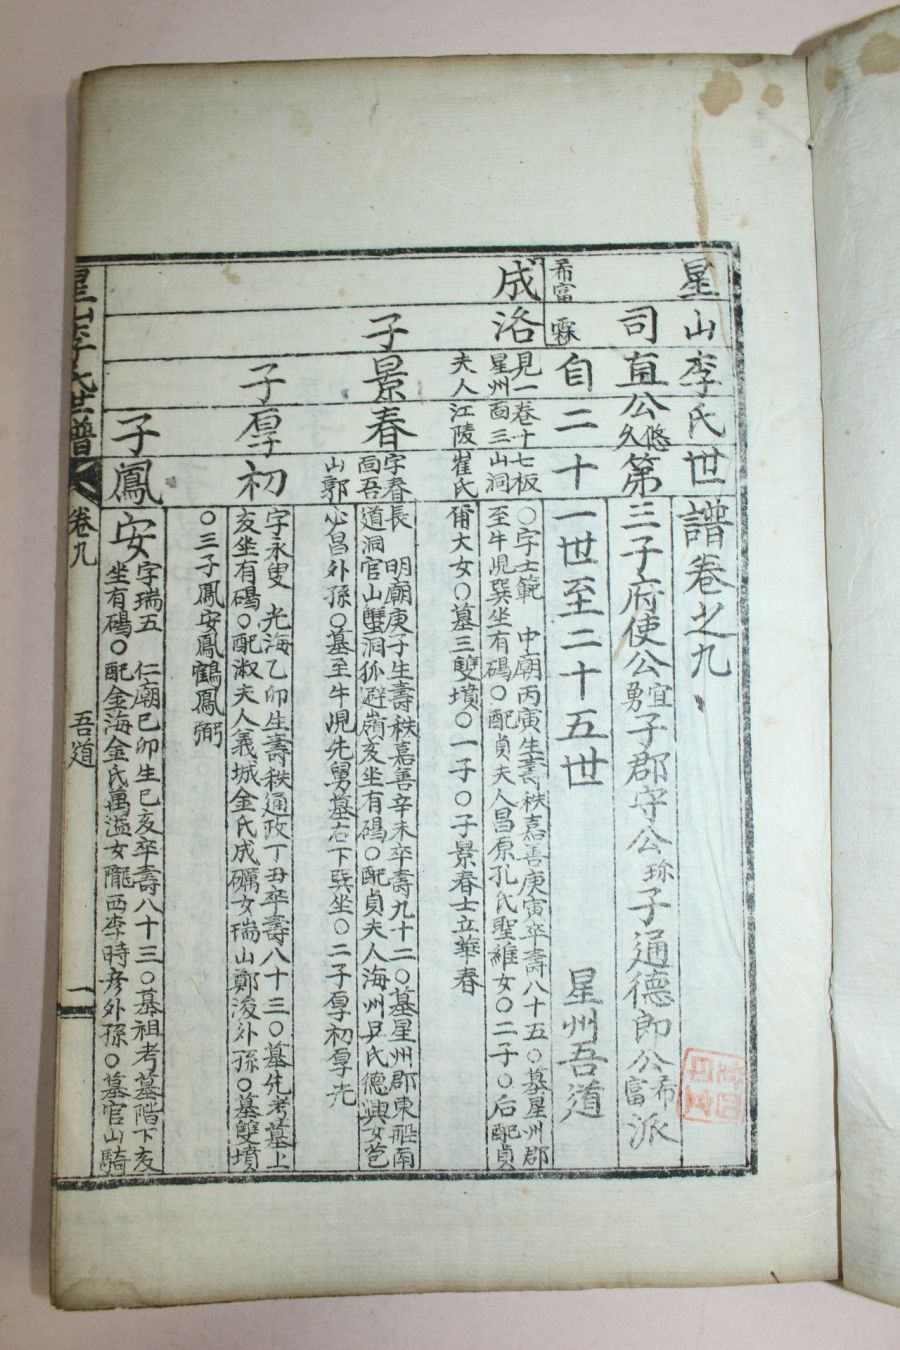 星山李氏世譜卷之九
司直公悠久第三子府使公宜勇子郡守公珎子通德郞公希富派
自二十一世至二十五世 星州吾道
希富 霖
成洛
見一卷十七板〇字士範 中廟丙寅生壽秩嘉善庚寅卒壽八十五〇墓星州郡
星州面三山洞至牛峴巽坐有碣〇配貞夫人昌原孔氏聖維女〇二子〇后配貞
夫人江陵崔氏甫大女〇墓三雙墳〇一子〇子景春士立華春
子景春
字春長 明廟庚子生壽秩嘉善辛未卒壽九十二〇墓星州郡東船南
面吾道洞官山蟹洞狐避嶺亥坐有碣〇配貞夫人海州吳氏德興女苞
山郭必昌外孫〇墓至牛峴先舅墓右下巽坐〇二子厚初厚光
子厚初
字永叟 光海乙卯生壽秩通政丁丑卒壽八十三〇墓先考墓上
亥坐有碣〇配淑夫人義城金氏成礪女瑞山鄭浚外孫〇墓雙墳
〇三子鳳安鳳鶴鳳弼
子鳳安
字瑞五 仁廟己卯生己亥卒壽八十三〇墓祖考墓階下亥
坐有碣〇配金海金氏萬溢女隴西李時彦外孫〇墓官山騎
星山李氏世譜 卷九 吾道 一